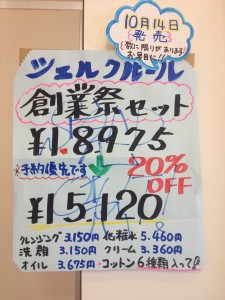 10月14日
発売
数に限りがあります
お早目に!!
シェルクルール
創業祭セット
¥18975
※予約優先です
20%
OFF
¥15,120
クレンジング 3.150円 化粧水 5.460円
洗顔 3.150円 クリーム 3.360円
オイル 3.675円 ・コットン6種類入って